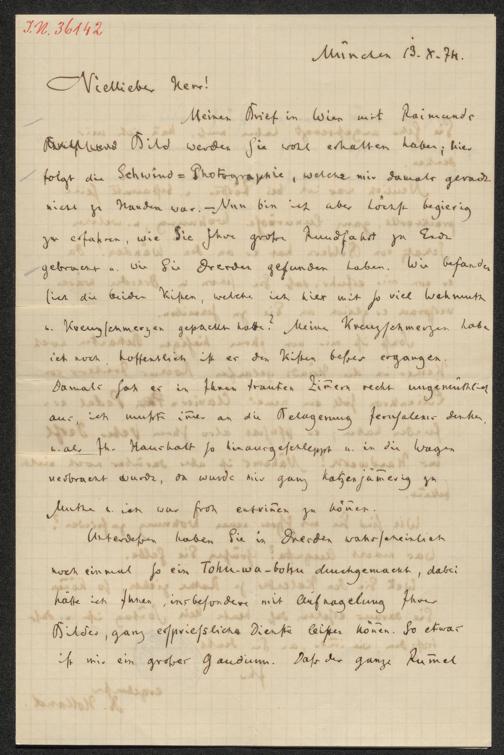 I.N. 36142
München 13. X. 74.
Vielllieber Herr!
Meinen Brief in Wien mit Raimunds
Bild werden Sie wohl erhalten haben; hier
folgt die Schwind=Photographie, welche mir damals gerade
nicht zu Handen war. – Nun bin ich aber höchst begierig
zu erfahren, wie Sie Ihre große Rundfahrt zu Ende
gebracht u. wie Sie Dresden gefunden haben. Wie befanden
sich die beiden Kisten, welche ich hier mit so viel Wehmuth
u. Kreuzschmerzen gepackt hatte? Meine Kreuzschmerzen habe
ich noch, hoffentlich ist es den Kisten besser ergangen.
Damals sah es in Ihren trauten Zimern recht ungemüthlich
aus, ich mußte imer an die Belagerung Jerusalems denken,
u. als Ihr Haushalt so hinausgeschleppt u. in die Wagen
verbracht wurde, da wurde mir ganz katzenjämerig zu
Muthe u. ich war froh entrinen zu könen.
Unterdessen haben Sie in Dresden wahrscheinlich
noch einmal so ein Tohu-wa-bohu durchgemacht, dabei
hätte ich Ihnen, insbesondere mit Aufnagelung Ihrer
Bilder, ganz ersprießliche Dienste leisten könen. So etwas
ist mir ein großes Gaudium. Daß der ganze Rumel